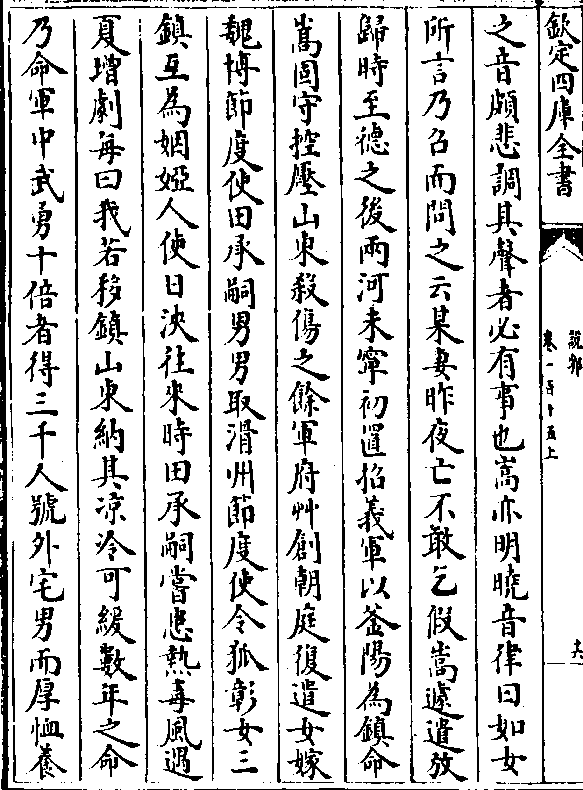 欽定四庫全書
說郛
卷一百十五上
六
之音頗悲調其聲者必有事也嵩亦明曉音律曰如女
所言乃召而問之云某妻昨夜亡不敢乞假嵩遽遣放
歸時至德之後兩河未寧初置招義軍以釜陽為鎮命
嵩固守控壓山東殺傷之餘軍府艸創朝庭復遣女嫁
魏博節度使田承嗣男男取滑州節度使令狐彰女三
鎮互為姻婭人使日浹往來時田承嗣嘗患熱毒風遇
夏增劇每曰我若移鎮山東納其凉冷可緩數年之命
乃命軍中武勇十倍者得三千人號外宅男而厚恤養